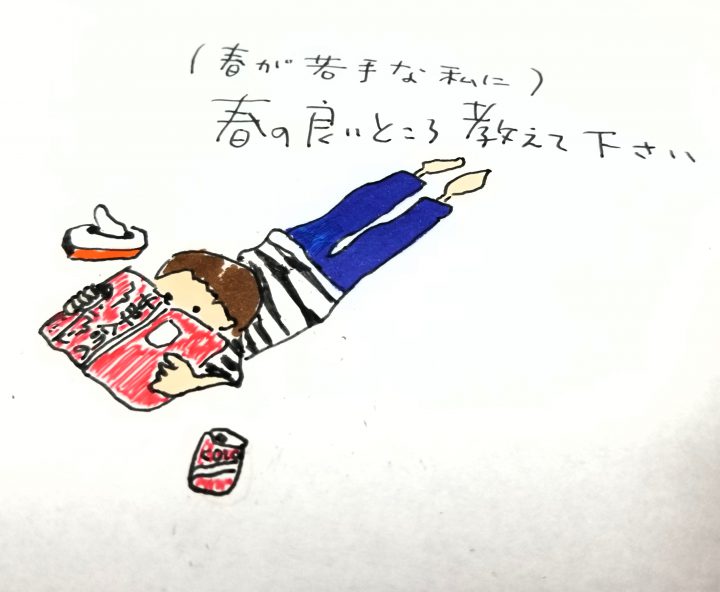 （春が苦手な私に）
春の良いところ教えて下さい